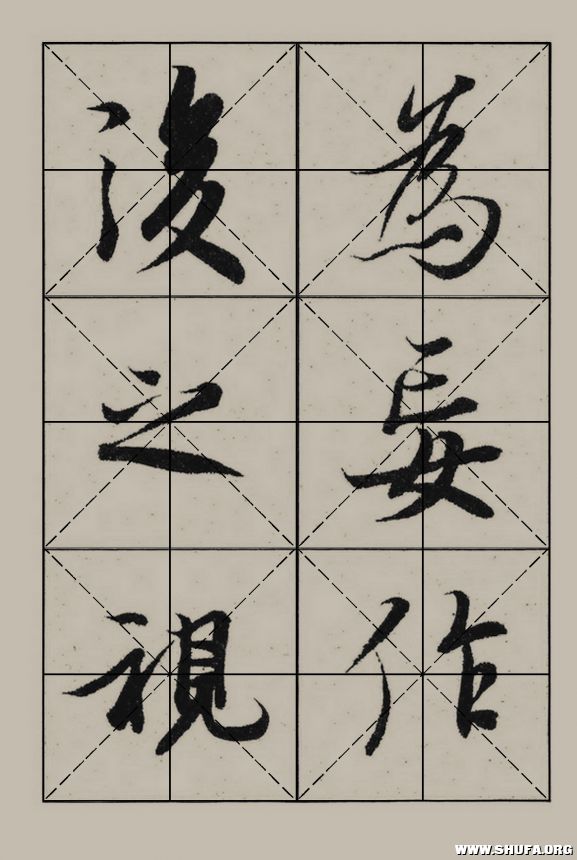 為妄作
後之視
WWW.SHUFA.ORG